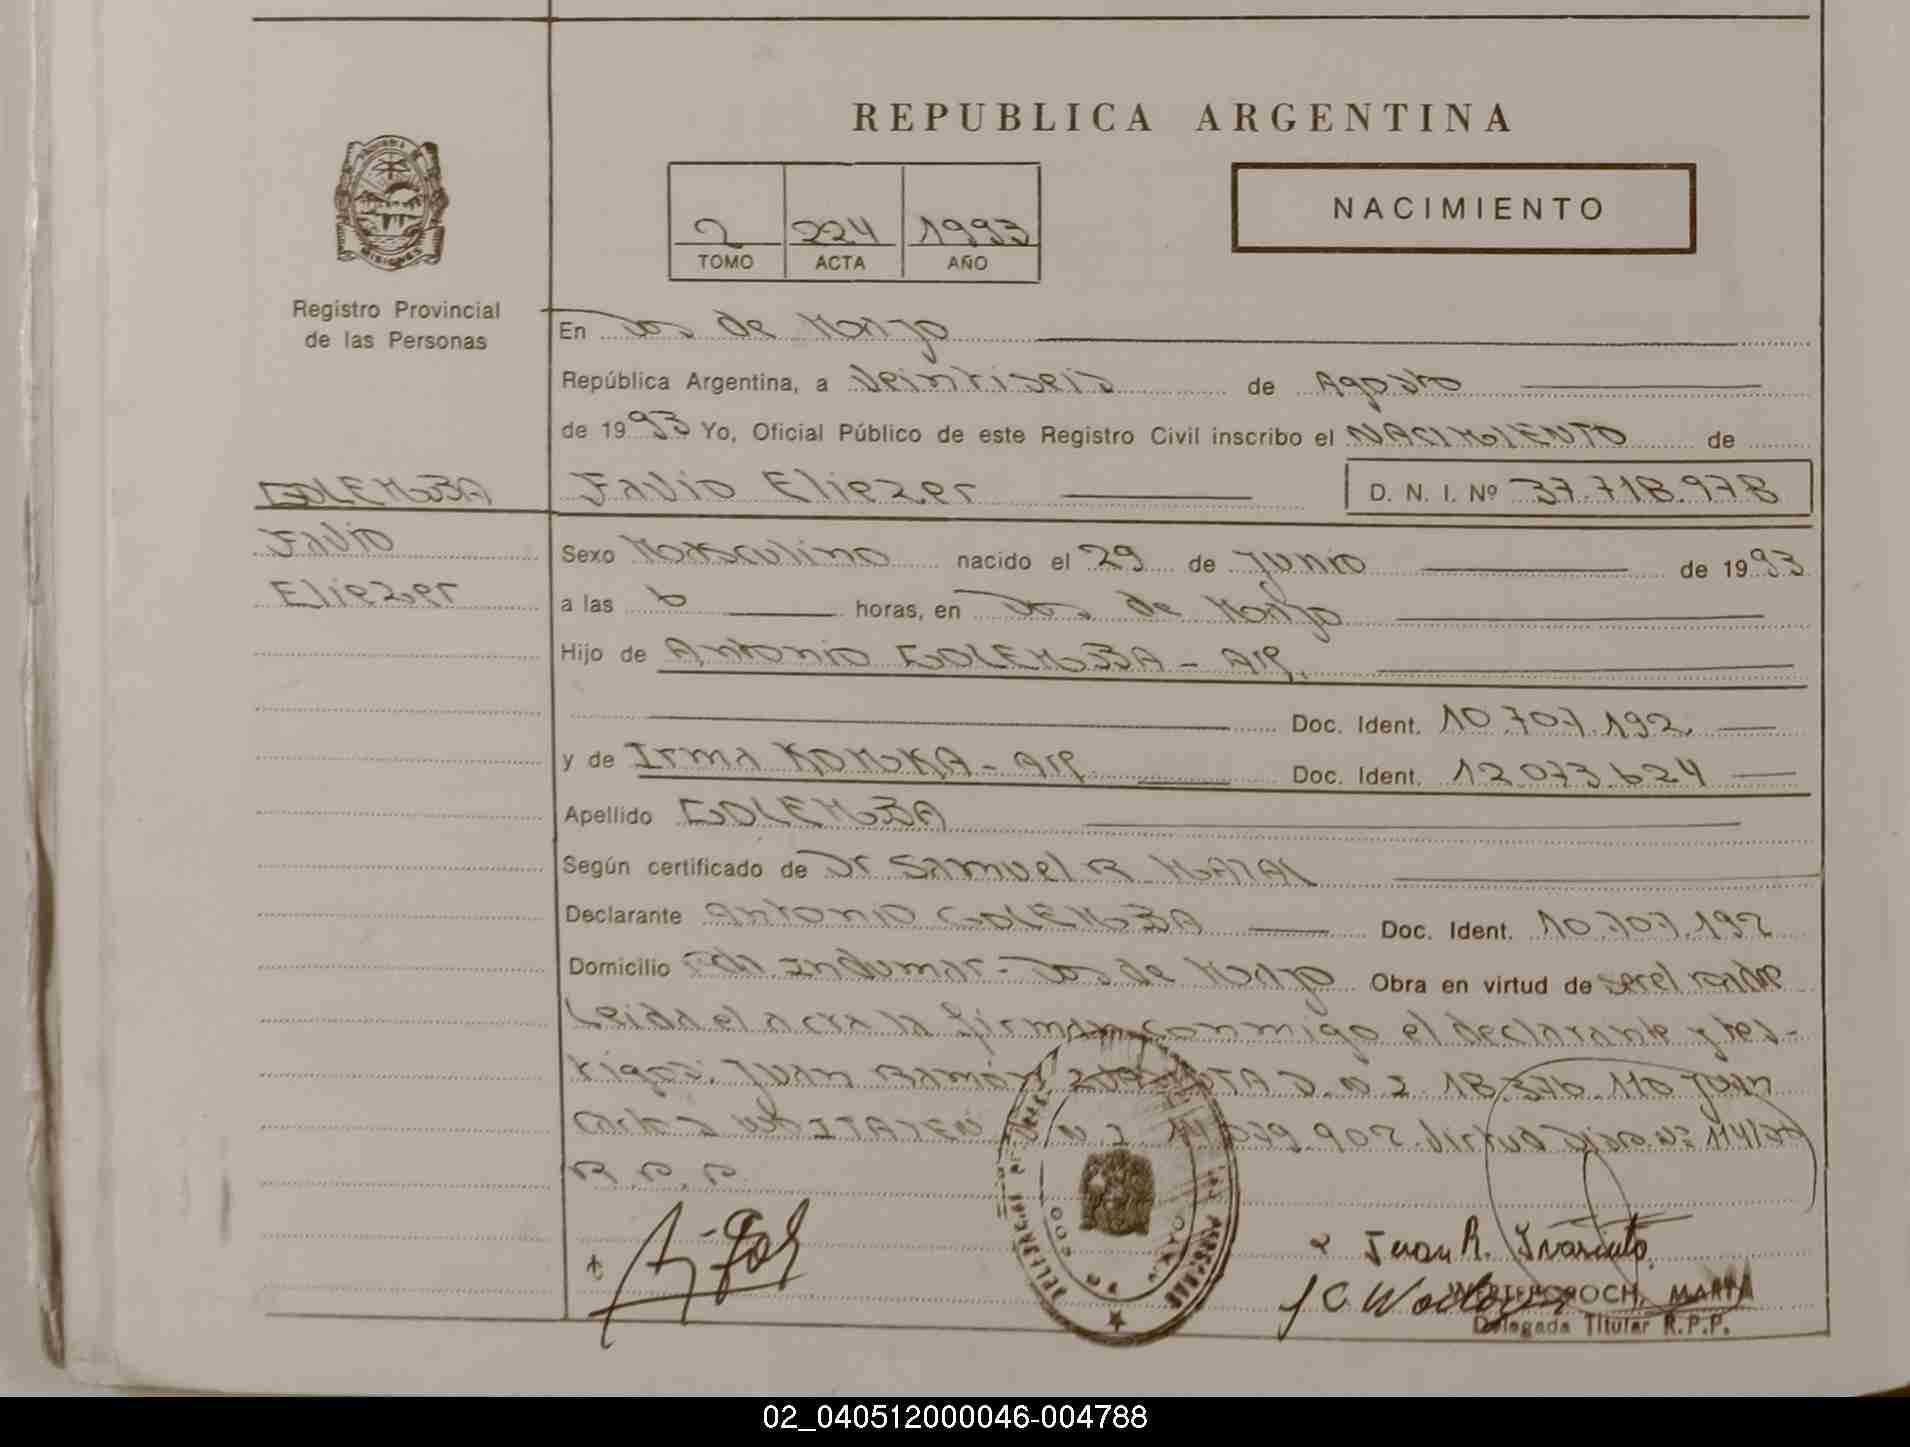 REPUBLICA ARGENTINA
NACIMIENTO
2 224 1993
TOMO ACTA AÑO
MISIONES
Registro Provincial
de las Personas
En Dos de Mayo
República Argentina, a Veintiseis de Agosto
de 1993 Yo, Oficial Público de este Registro Civil inscribo el NACIMIENTO de
GOLEMBA
Favio Eliezer D. N. I. Nº 37.718.978
Favio
Eliezer
Sexo Masculino nacido el 29 de Junio de 1993
a las 6 horas, en Dos de Mayo
Hijo de Antonio GOLEMBA - Arg.
Doc. Ident. 10.707.192.
y de Irma KOMKA - Arg. Doc. Ident. 12.073.624
Apellido GOLEMBA
Según certificado de Dr Samuel R
Declarante Antonio GOLEMBA Doc. Ident. 10.707.192
Domicilio Pda Indumar - Dos de Mayo Obra en virtud de ser el padre
Leida el acta la firman conmigo el declarante y tes-
tigos: Juan Ramón D.N.I 18.376.110 Juan
Carlos D.N.I 14.039.902. Virtud Disp. Nº 114/
R.P.P.
Juan R.
J C
MARTA
Delegada Titular R.P.P.
02_040512000046-004788